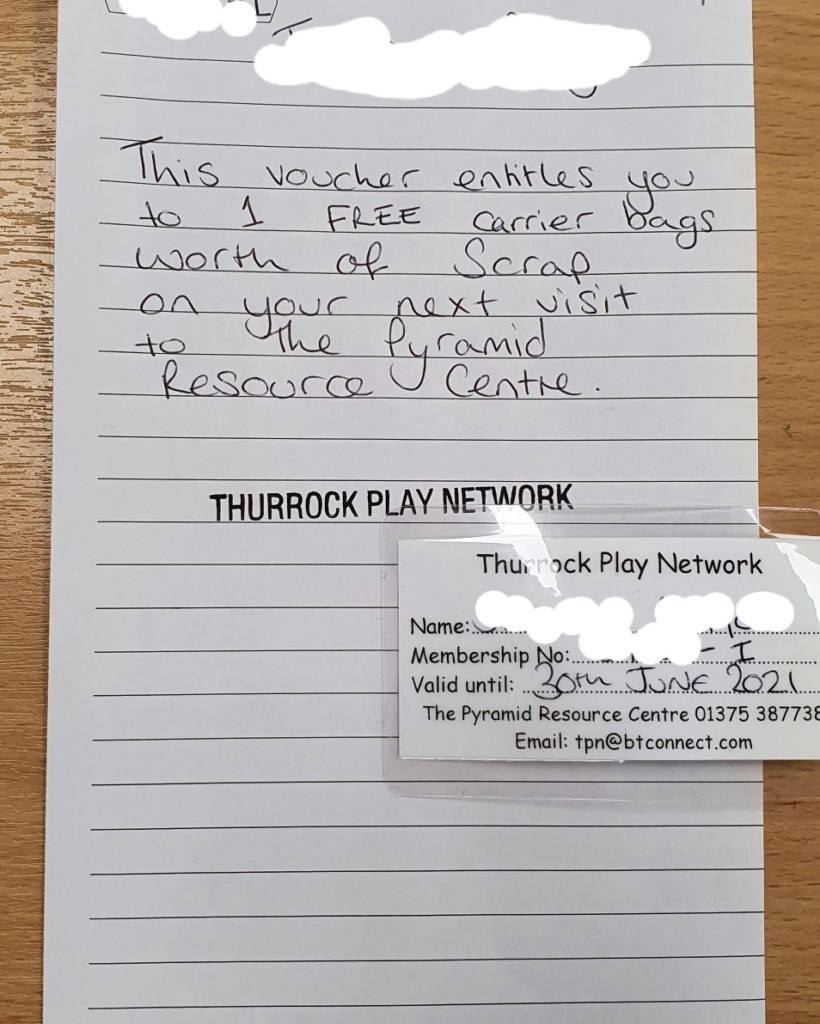 This voucher entitles you
to 1 FREE carrier bags
worth of Scrap
on your next visit
to the Pyramid
Resource Centre.
THURROCK PLAY NETWORK
Thurrock Play Network
Name:
Membership No: - I
Valid until: 30th JUNE 2021
The Pyramid Resource Centre 01375 387738
Email: tpn@btconnect.com